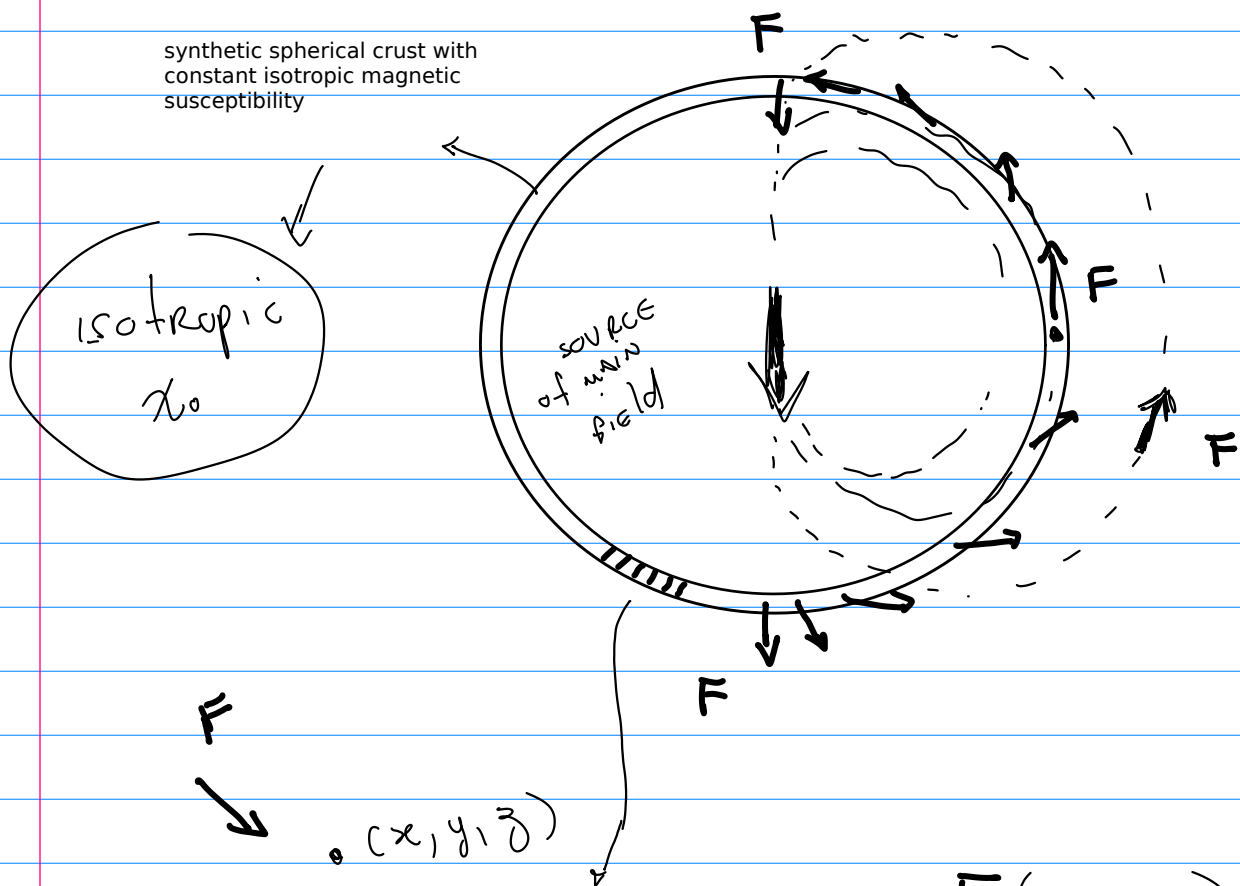 F
synthetic spherical crust with
constant isotropic magnetic
susceptibility
F
isotropic
χ₀
SOURCE
of MAIN
field
F
F
F
(x, y, z)
F(